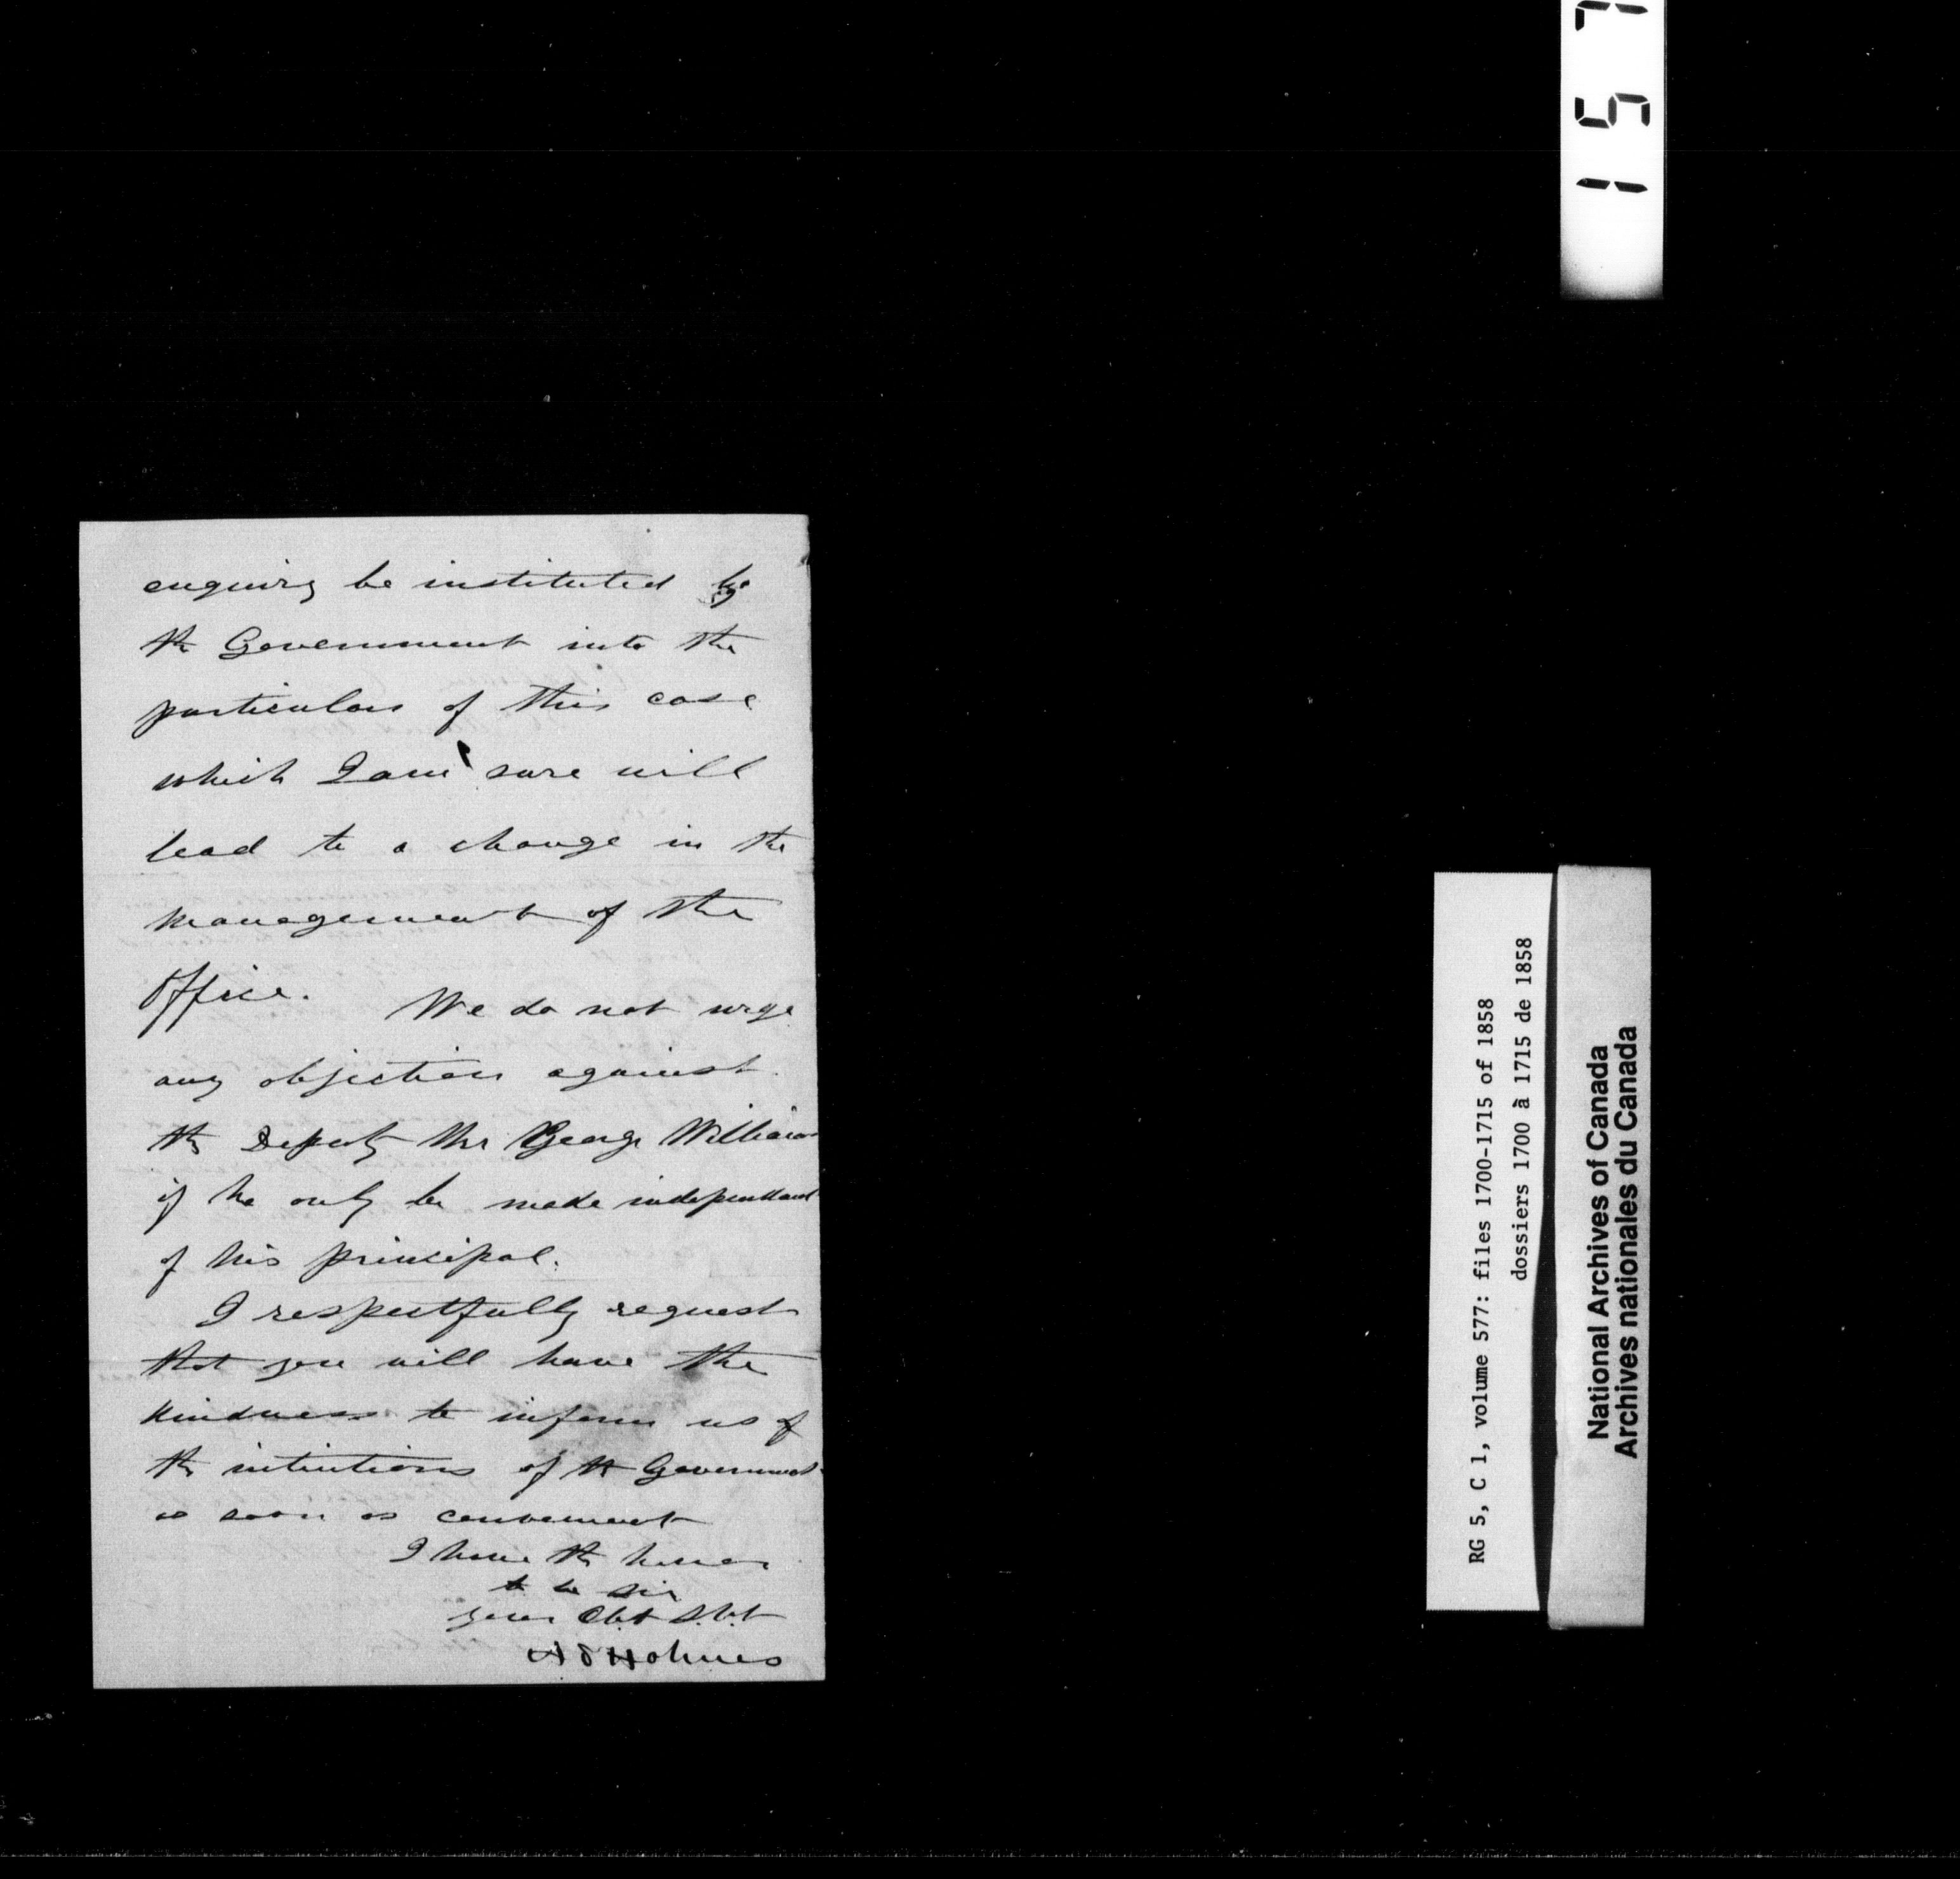 enquiry be instituted by
the Government into the
particulars of this case
which I am sure will
lead to a change in the
management of the
Office. We do not urge
any objection against
the Deputy Mr George William
if he only be made independant
of his principal.
I respectfully request
that you will have the
kindness to inform us of
the intentions of the Government
as soon as convenient
I have the honor
to be Sir
your Obt Svt
A S Holmes
157
RG 5, C 1, volume 577: files 1700-1715 of 1858
dossiers 1700 à 1715 de 1858
National Archives of Canada
Archives nationales du Canada